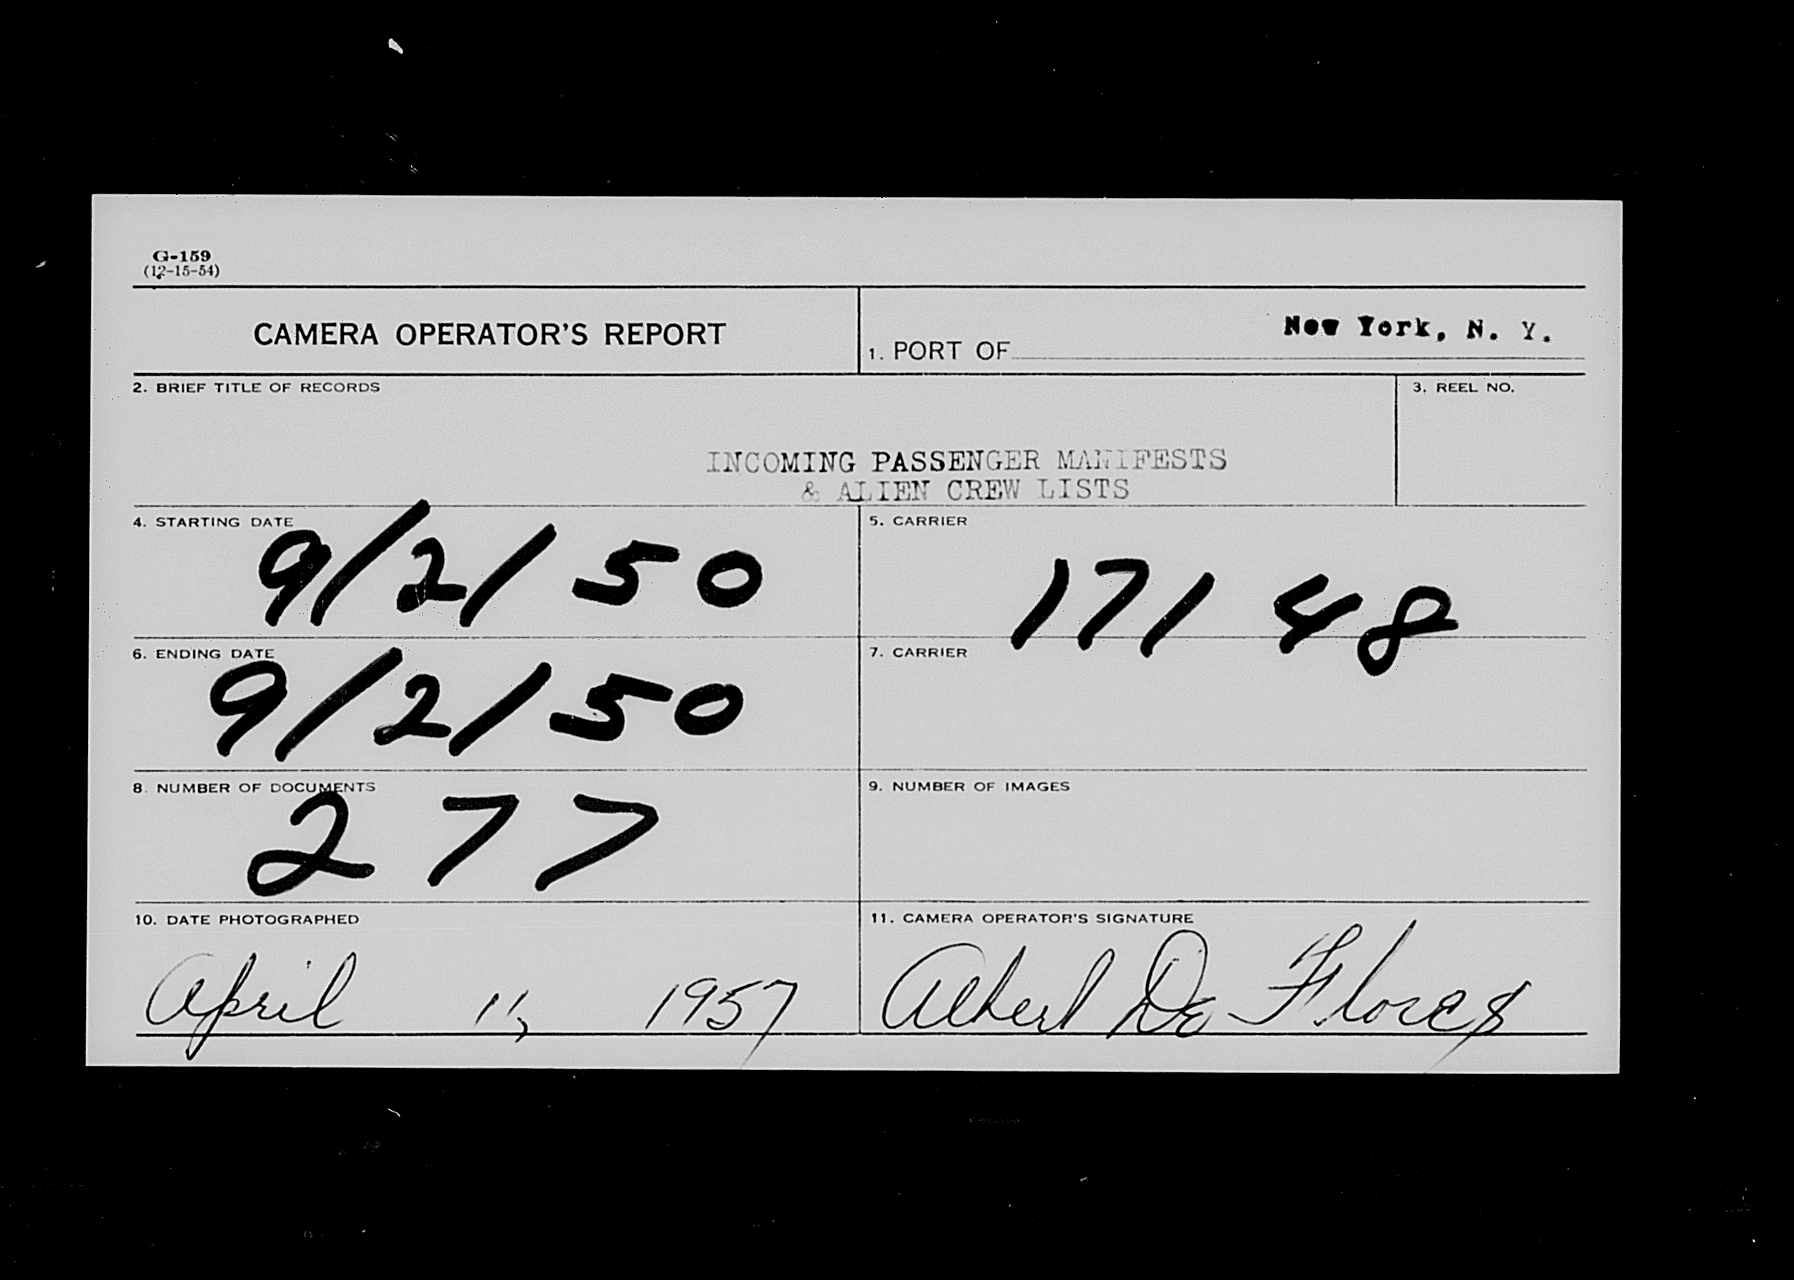 G-159
(12-15-54)
CAMERA OPERATOR'S REPORT
1. PORT OF New York, N. Y.
2. BRIEF TITLE OF RECORDS
3. REEL NO.
INCOMING PASSENGER MANIFESTS
& ALIEN CREW LISTS
4. STARTING DATE
9/2/50
5. CARRIER
17148
6. ENDING DATE
9/2/50
7. CARRIER
8. NUMBER OF DOCUMENTS
277
9. NUMBER OF IMAGES
10. DATE PHOTOGRAPHED
April 11, 1957
11. CAMERA OPERATOR'S SIGNATURE
Albert De Flores